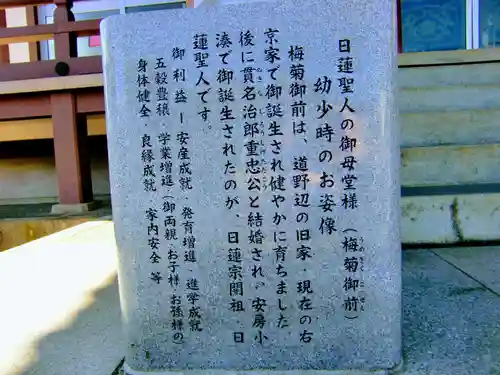 日蓮聖人の御母堂様(梅菊御前)
幼少時のお姿像
梅菊御前は、道野辺の旧家・現在の右
京家で御誕生され健やかに育ちました。
後に貫名治郎重忠公と結婚され。安房小
湊で御誕生されたのが、日蓮宗開祖 日
蓮聖人です。
御利益ー安産成就・発育増進・進学成就
五穀豊穣・学業増進(御両親・お子様・お孫様の)
身体健全・良縁成就・家内安全 等